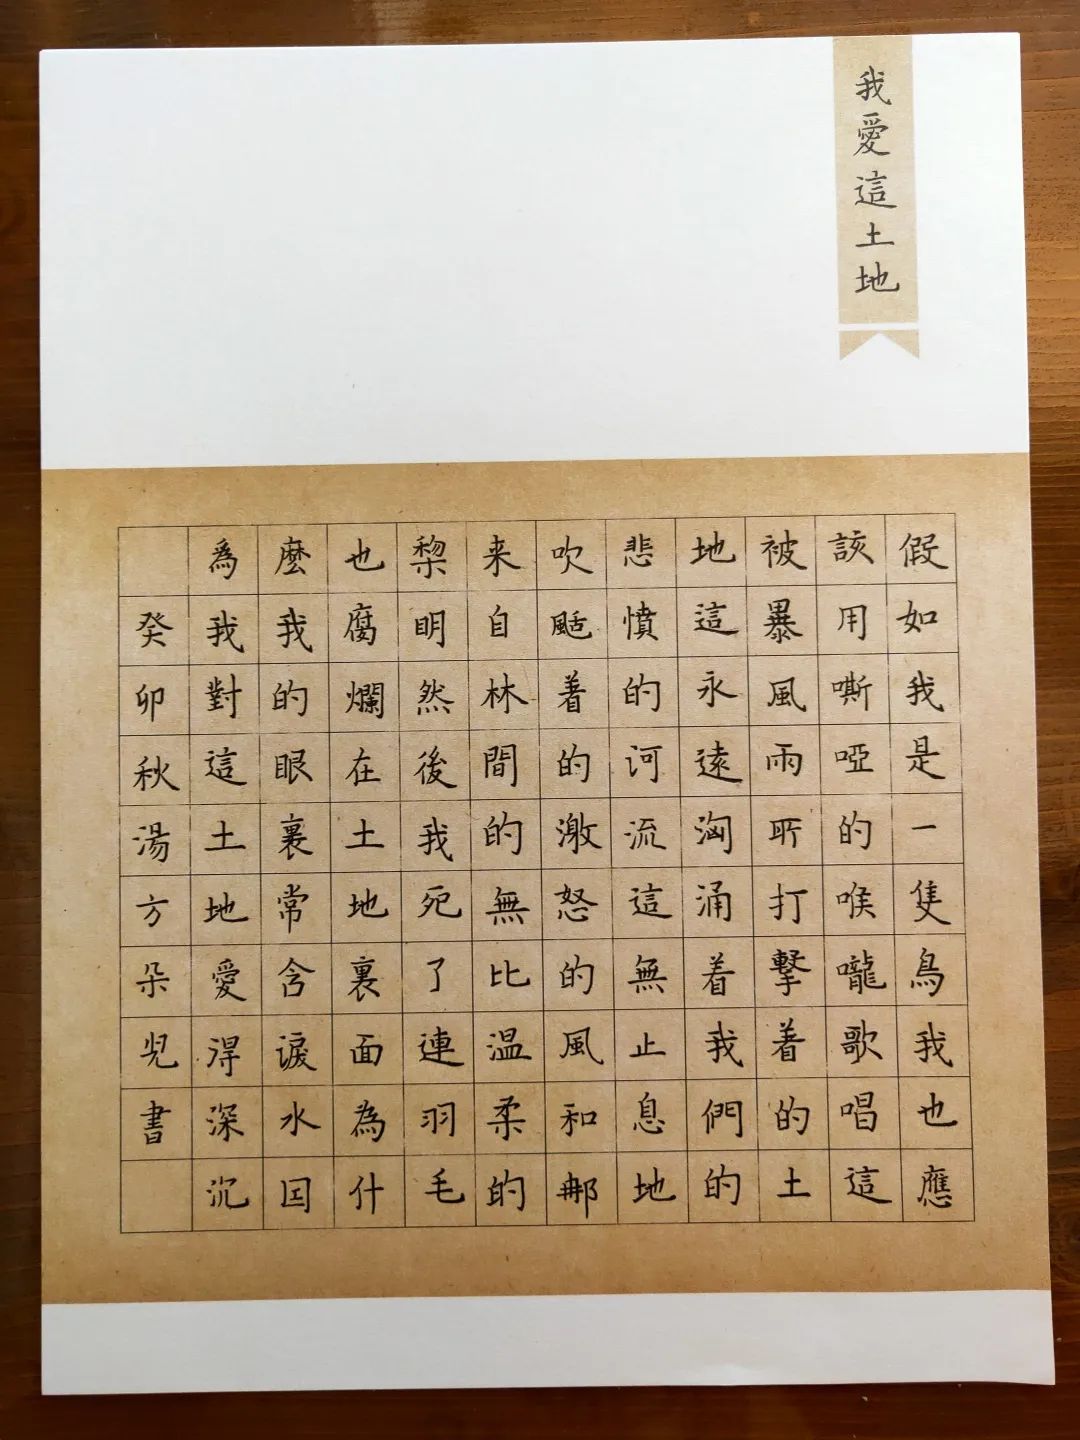 我愛這土地
假如我是一隻鳥我也應
該用嘶啞的喉嚨歌唱這
被暴風雨所打擊着的土
地這永遠洶涌着我們的
悲憤的河流這無止息地
吹颳着的激怒的風和那
来自林間的無比温柔的
黎明然後我死了連羽毛
也腐爛在土地裏面為什
麼我的眼裏常含淚水因
爲我對這土地愛得深沉
癸卯秋湯方朵児書